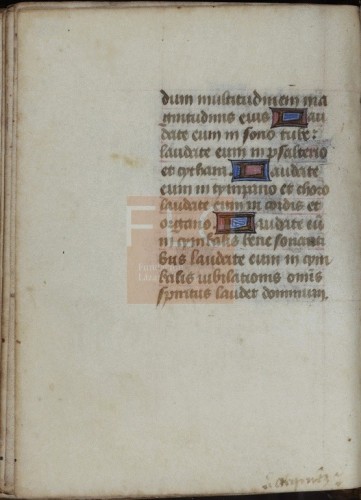 dum multitudinem ma
gnitudinis eius Lau
date eum in sono tube:
laudate eum in psalterio
et cythara Laudate
eum in tympano et choro
laudate eum in cordis et
organo. Laudate eū
in cymbalis bene sonanti
bus laudate eum in cym
balis iubilationis omīs
spiritus laudet dominum.